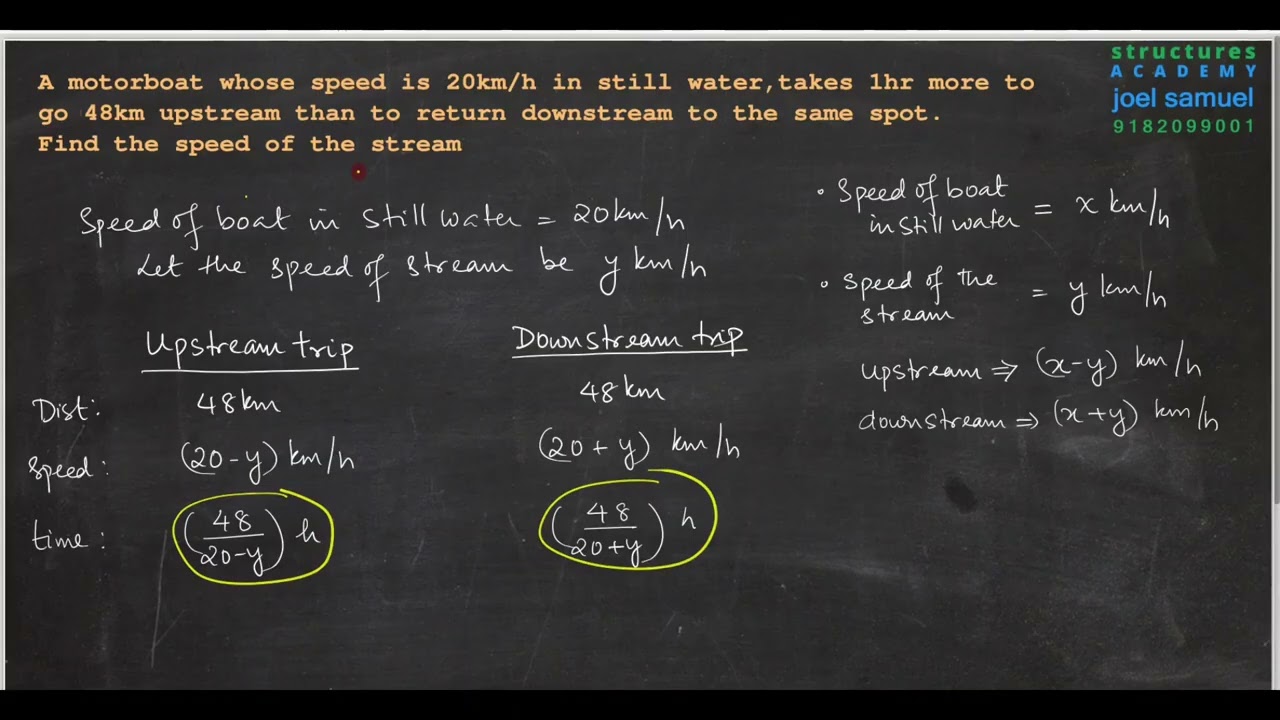 structures
ACADEMY
joel samuel
9182099001
A motorboat whose speed is 20km/h in still water,takes 1hr more to
go 48km upstream than to return downstream to the same spot.
Find the speed of the stream
Speed of boat in still water = 20km/h
Let the speed of stream be y km/h
Upstream trip
Downstream trip
Dist: 48km 48km
Speed: (20-y) km/h (20+y) km/h
time: (48/20-y) h (48/20+y) h
• Speed of boat
in still water = x km/h
• Speed of the
stream = y km/h
upstream ⇒ (x-y) km/h
downstream ⇒ (x+y) km/h